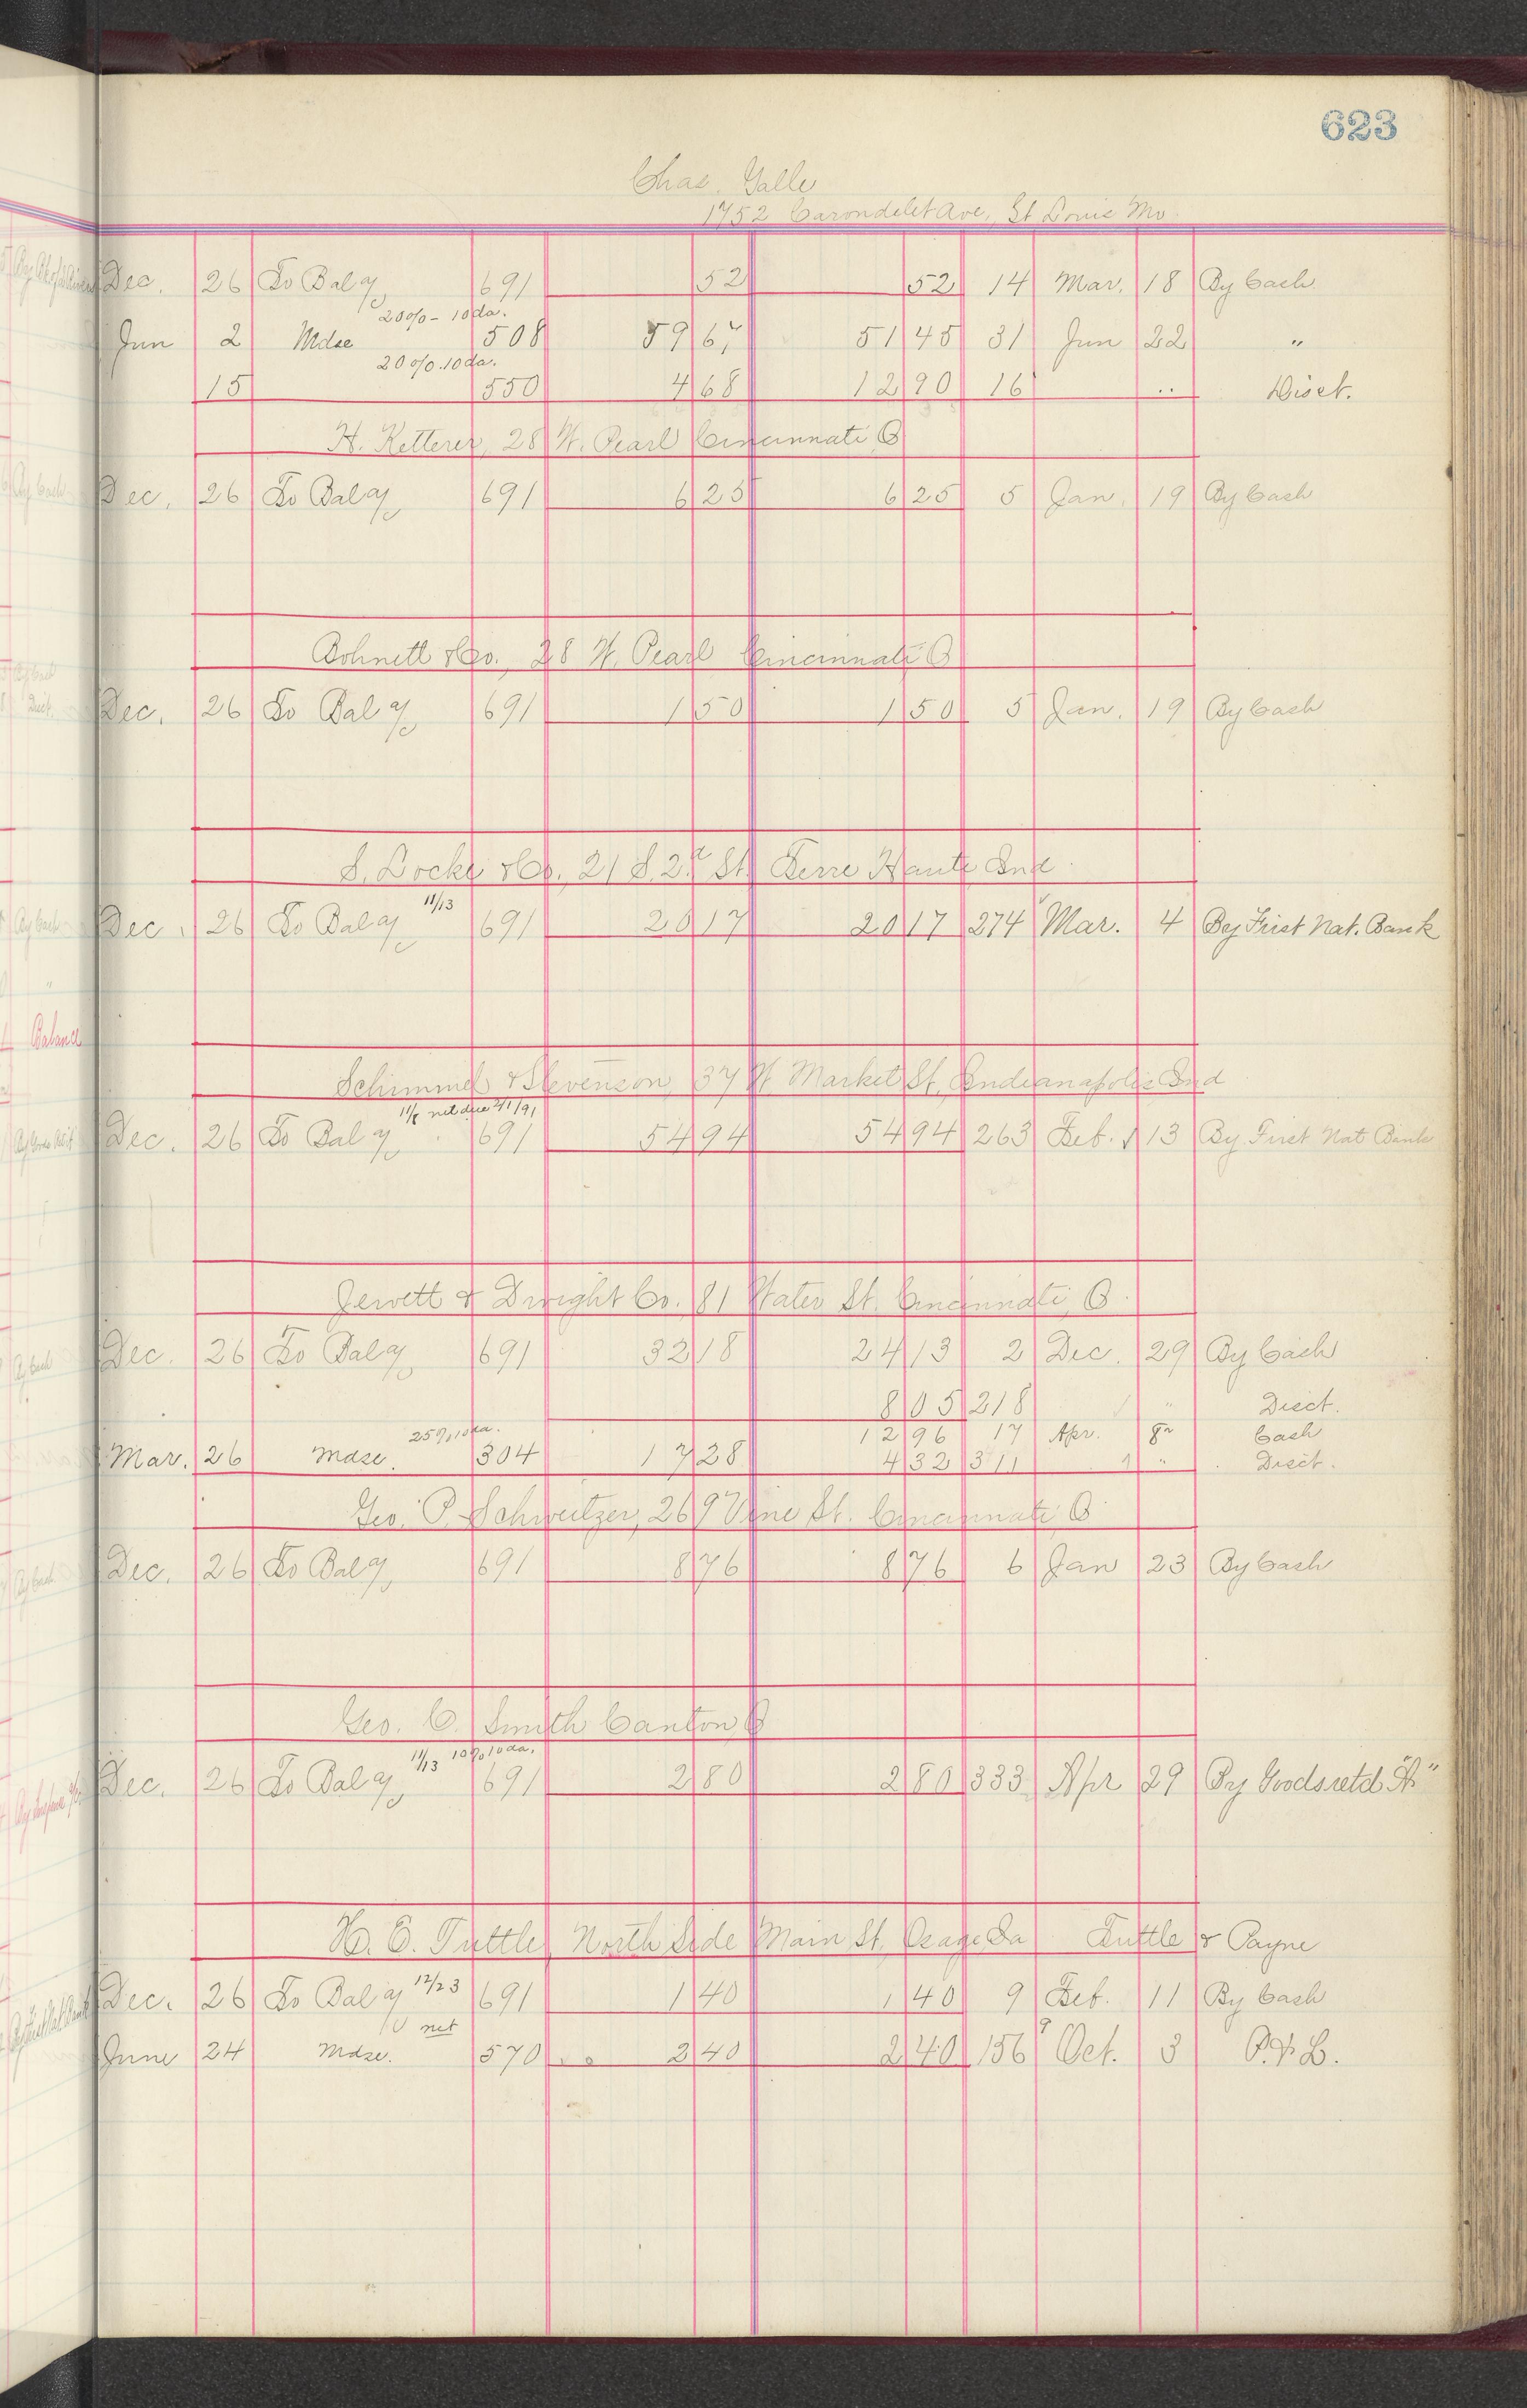 623
Chas. Galle
1752 Carondelet Ave, St Louis Mo
Dec. 26 To Bal a/c 691 52 52 14 Mar. 18 By Cash
20% - 10 da.
Jun 2 Mdse 508 59 67 51 45 31 Jun 22 "
20% 10 da.
15 550 4 68 12 90 16 .. Disct.
H. Ketterer, 28 W. Pearl Cincinnati O
Dec. 26 To Bal a/c 691 6 25 6 25 5 Jan. 19 By Cash
Bohnett & Co., 28 W. Pearl Cincinnati O
Dec. 26 To Bal a/c 691 1 50 1 50 5 Jan. 19 By Cash
S. Locke & Co., 21 S. 2d St. Terre Haute Ind
Dec. 26 To Bal a/c 11/13 691 20 17 20 17 274 Mar. 4 By First Nat. Bank
Schimmel & Stevenson, 37 W. Market St., Indianapolis Ind
11/8 net due 2/1/91
Dec. 26 To Bal a/c 691 54 94 54 94 263 Feb. 13 By First Nat Bank
Jewett & Dwight Co. 81 Water St. Cincinnati, O.
Dec. 26 To Bal a/c 691 32 18 24 13 2 Dec. 29 By Cash
8 05 218 " Disct.
25% 10 da. 12 96 17 Apr. 8 Cash
Mar. 26 Mdse. 304 17 28 4 32 311 " Disct.
Geo. P. Schweitzer, 269 Vine St. Cincinnati O
Dec. 26 To Bal a/c 691 8 76 8 76 6 Jan 23 By Cash
Geo. C. Smith Canton, O
11/13 10% 10 da.
Dec. 26 To Bal a/c 691 2 80 2 80 333 Apr 29 By Goods retd "A"
H. E. Tuttle, North Side Main St, Osage Ia Tuttle & Payne
Dec. 26 To Bal a/c 12/23 691 1 40 1 40 9 Feb. 11 By Cash
net
June 24 Mdse. 570 2 40 2 40 156 Oct. 3 P. & L.